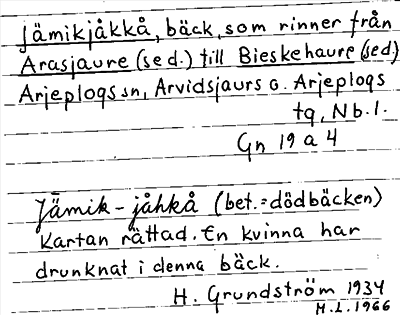 jämikjåkkå, bäck, som rinner från
Arasjaure (sed.) till Bieskehaure (sed)
Arjeplogs sn, Arvidsjaurs o. Arjeplogs
tg, Nb. l.
Gn 19 a 4
Jāmik-jåhkå (bet. = dödbäcken)
Kartan rättad. En kvinna har
drunknat i denna bäck.
H. Grundström 1934
H.L. 1966